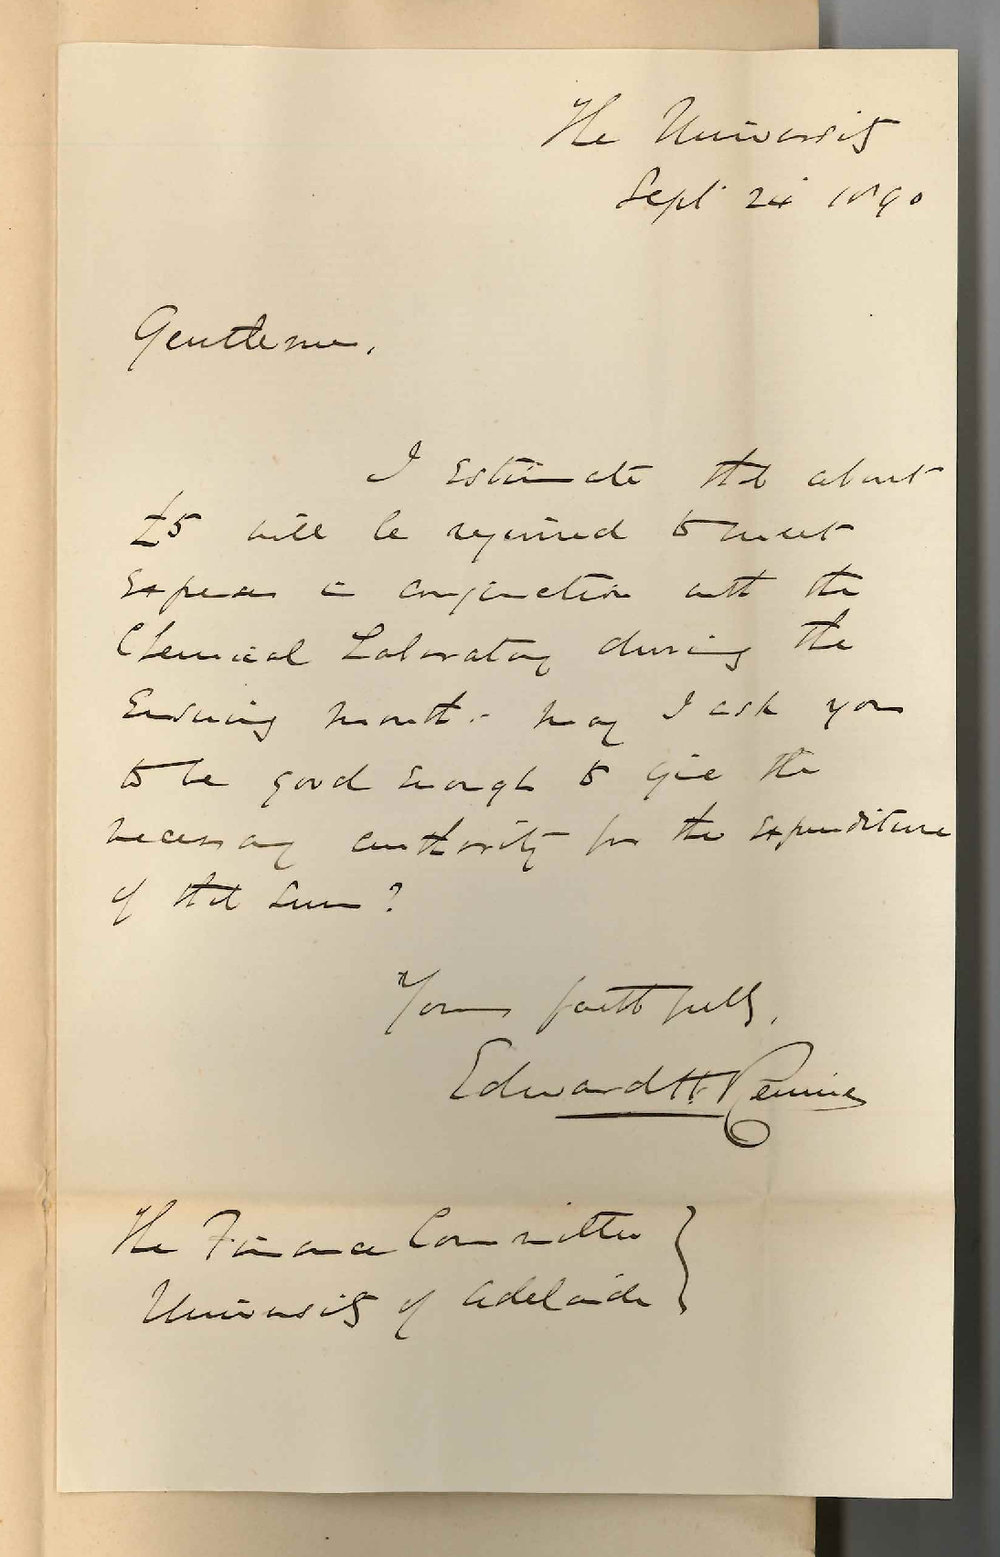 The University
Sept 24 1890
Gentlemen,
I estimate that about
£5 will be required to meet
expenses in conjunction with the
Chemical Laboratory during the
ensuing month. - May I ask you
to be good enough to give the
necessary authority for the expenditure
of that sum?
Yours faithfully,
Edward H. Rennie
The Finance Committee
University of Adelaide